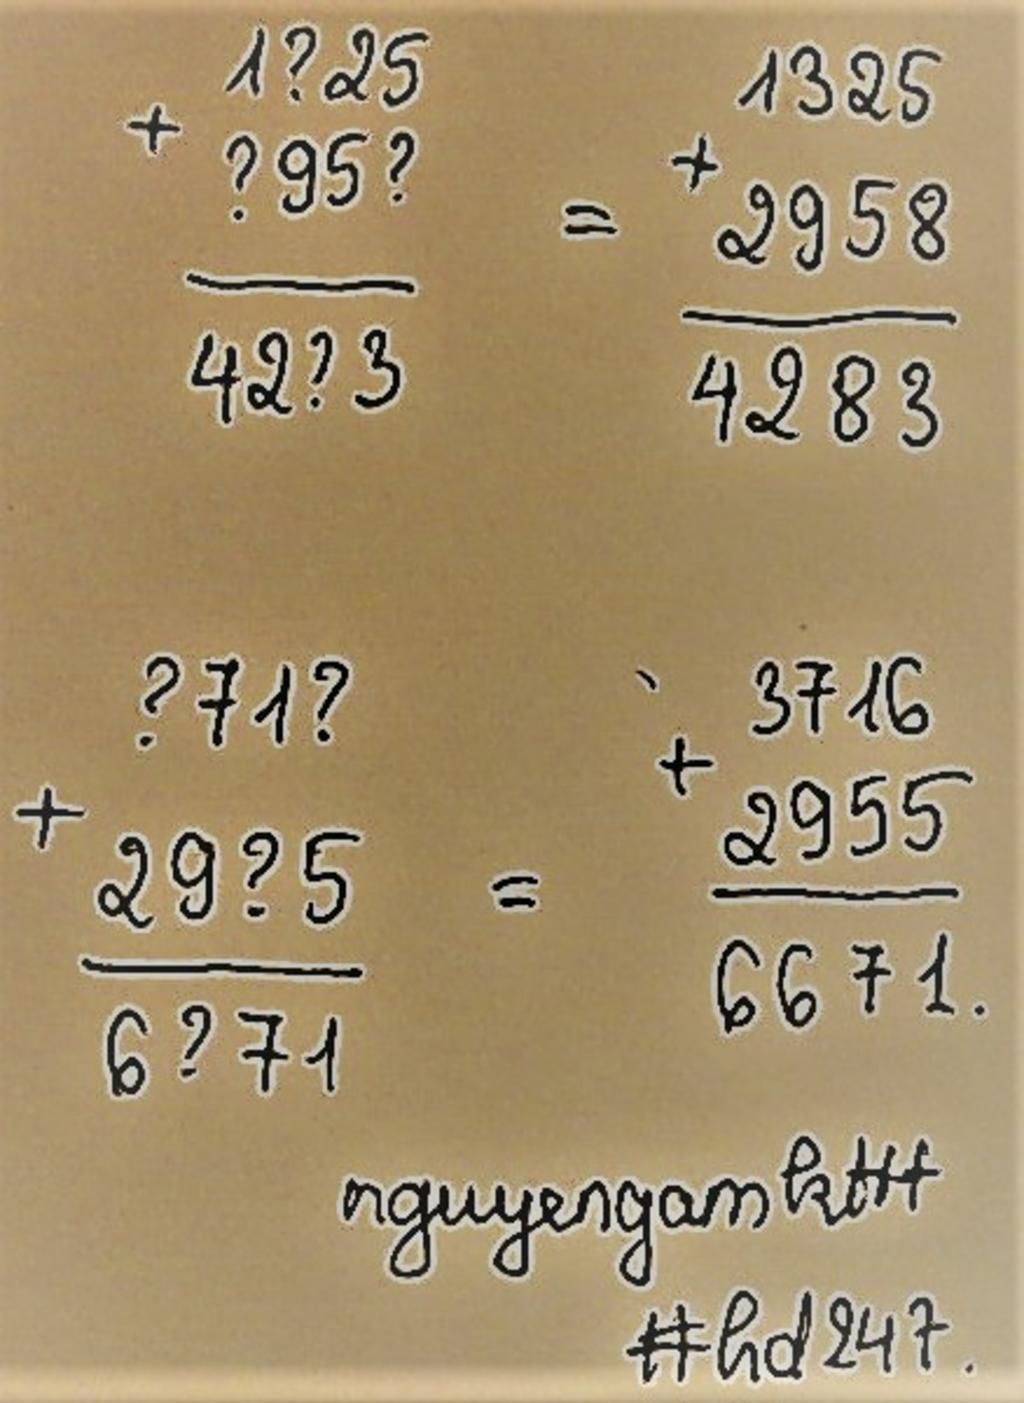 1?25
+
?95?
42?3
=
1325
+
2958
4283
?71?
+
29?5
6?71
=
3716
+
2955
6671.
#hd247.